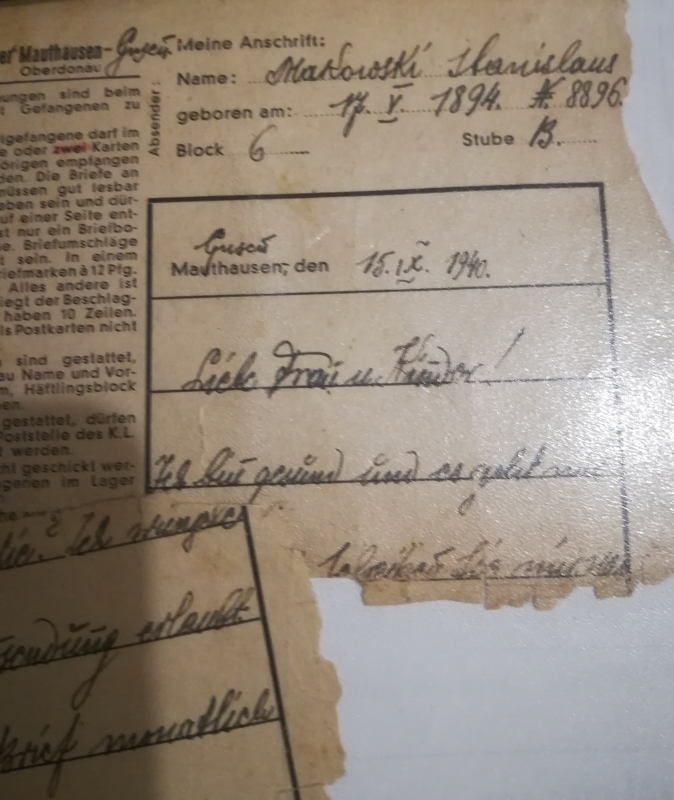 er Mauthausen-Gusen
Oberdonau
ungen sind beim
t Gefangenen zu
gefangene darf im
e oder zwei Karten
örigen empfangen
den. Die Briefe an
müssen gut lesbar
eben sein und dür-
uf einer Seite ent-
st nur ein Briefbo-
e. Briefumschläge
t sein. In einem
riefmarken à 12 Pfg.
Alles andere ist
iegt der Beschlag-
haben 10 Zeilen.
ls Postkarten nicht
sind gestattet,
au Name und Vor-
m, Häftlingsblock
en.
gestattet, dürfen
Poststelle des K.L.
t werden.
cht geschickt wer-
genen im Lager
Absender:
Meine Anschrift:
Name: Makowski Stanislaus
geboren am: 17. V. 1894. # 8896.
Block 6 Stube B.
Gusen
Mauthausen, den 15. IX. 1940.
Liebe Frau u. Kinder!
Ich bin gesund und es geht
sendung erlaubt
Brief monatlich